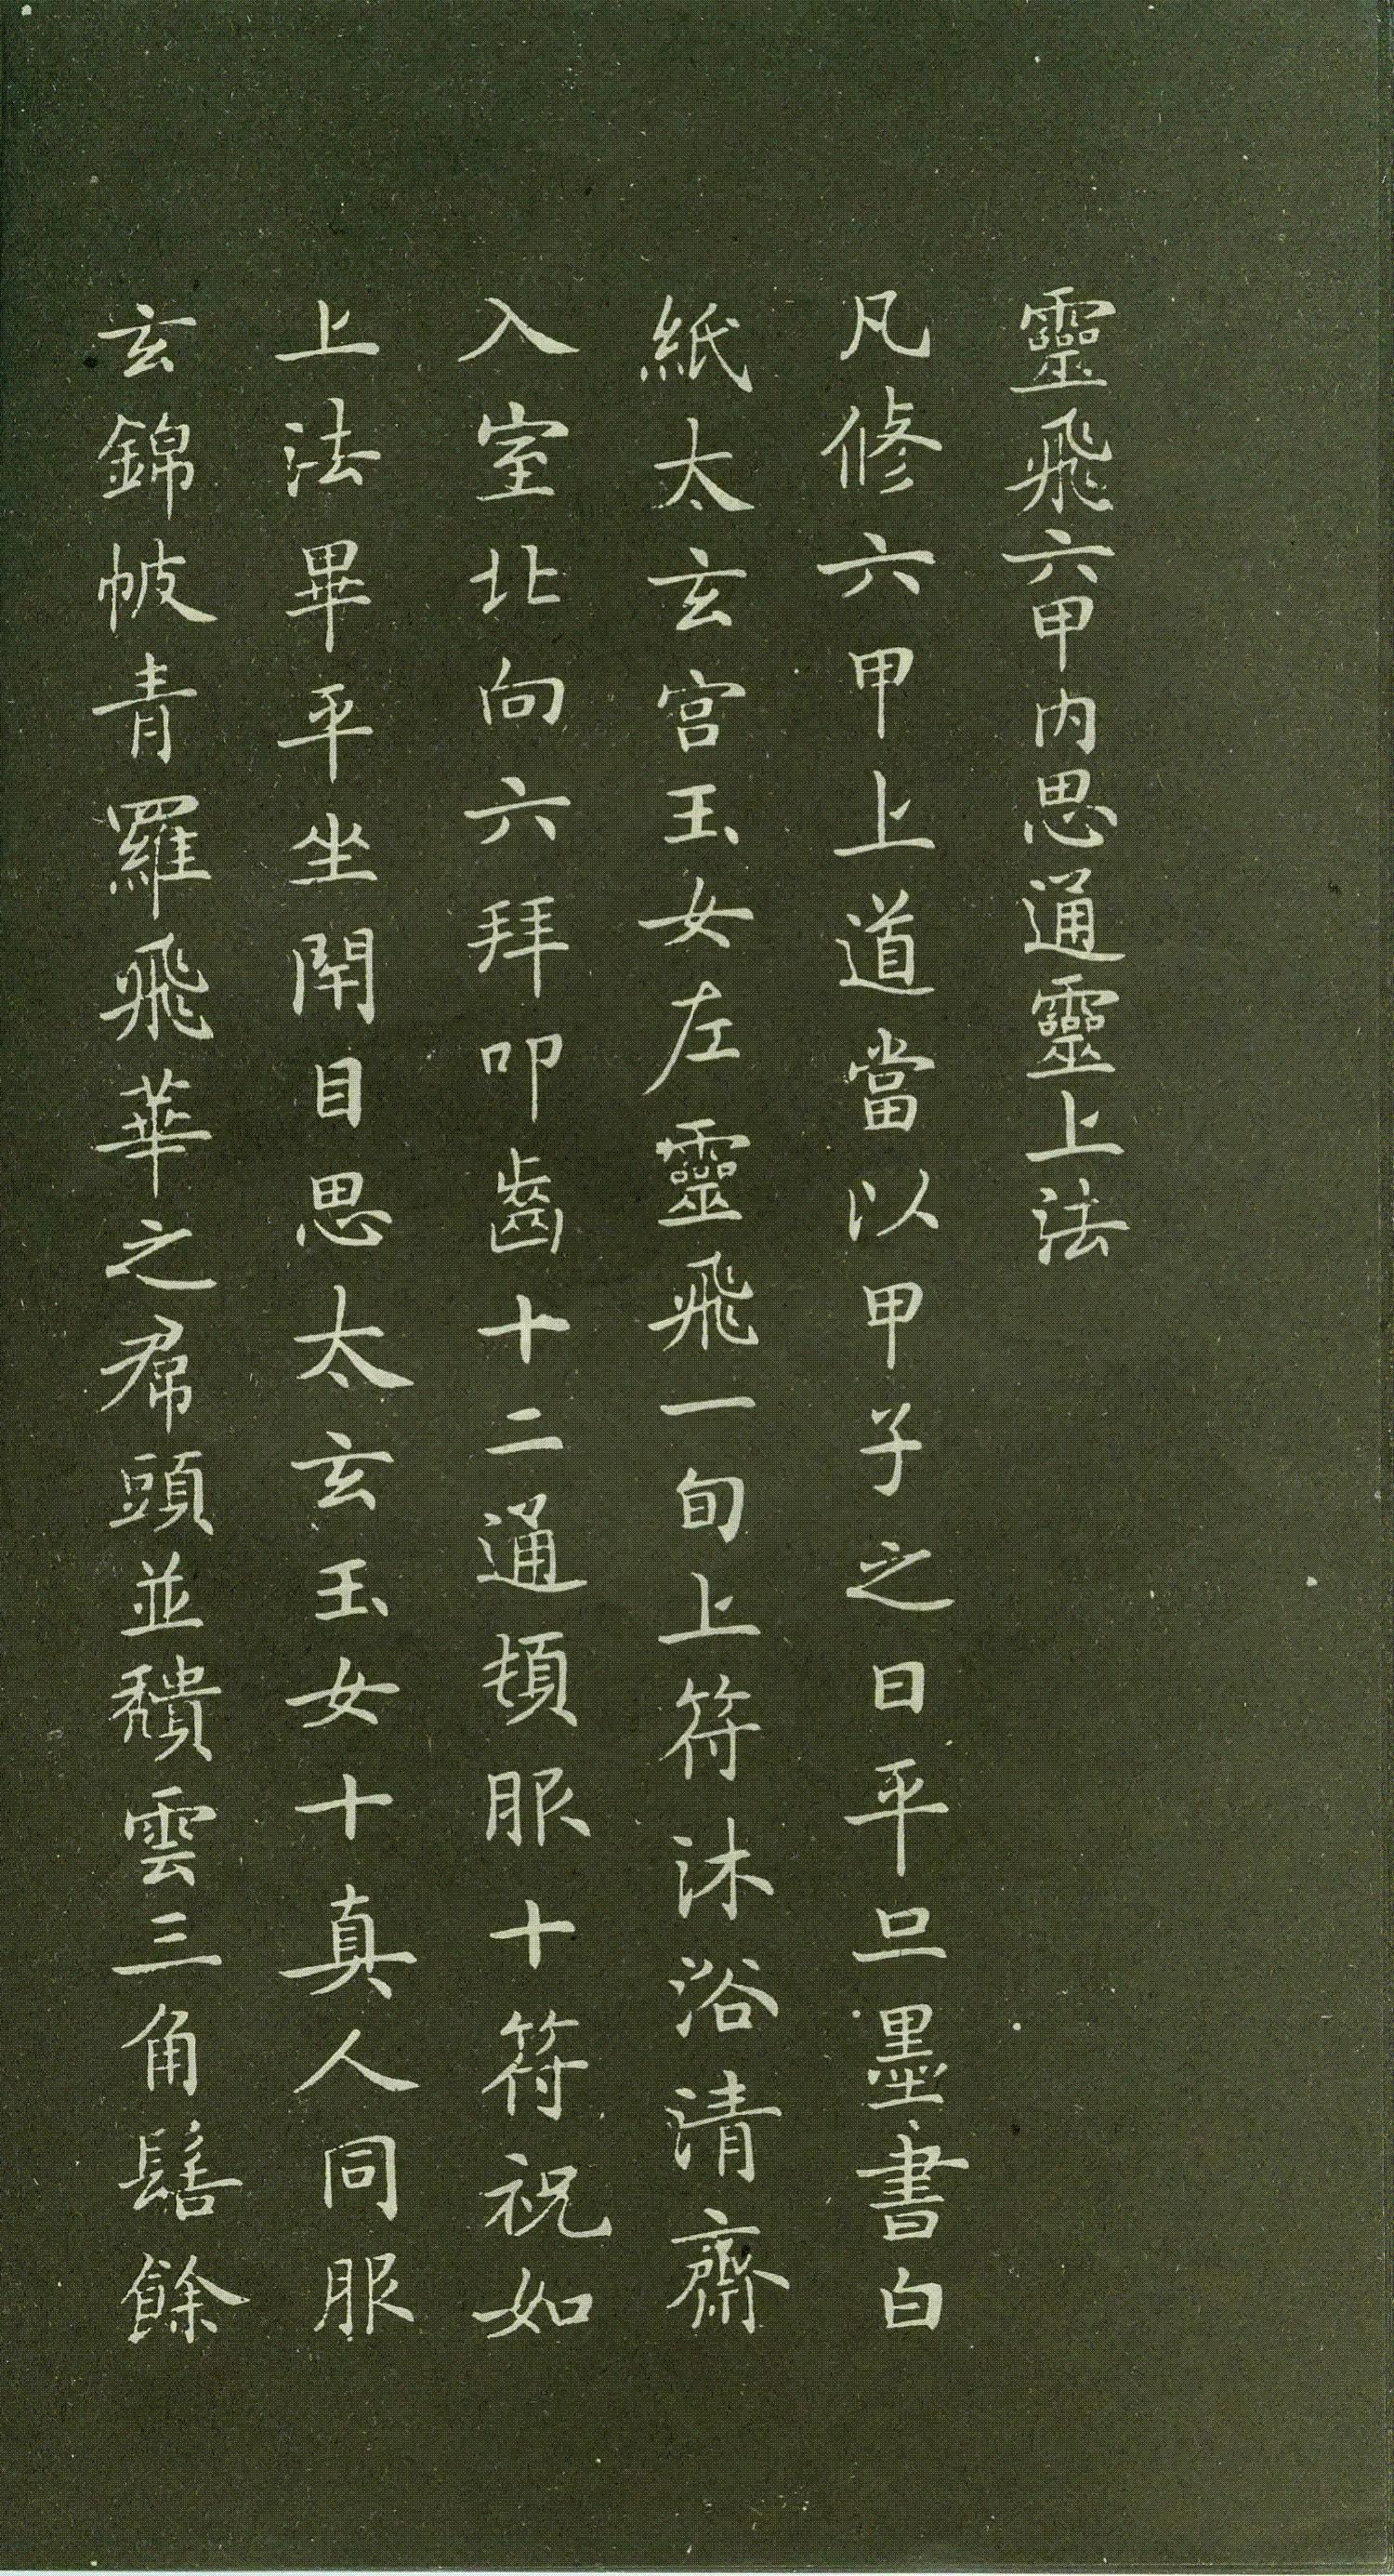 靈飛六甲內思通靈上法
凡修六甲上道當以甲子之日平旦墨書白
紙太玄宮玉女左靈飛一旬上符沐浴清齋
入室北向六拜叩齒十二通頓服十符祝如
上法畢平坐閇目思太玄玉女十真人同服
玄錦帔青羅飛華之帬頭並頹雲三角髻餘